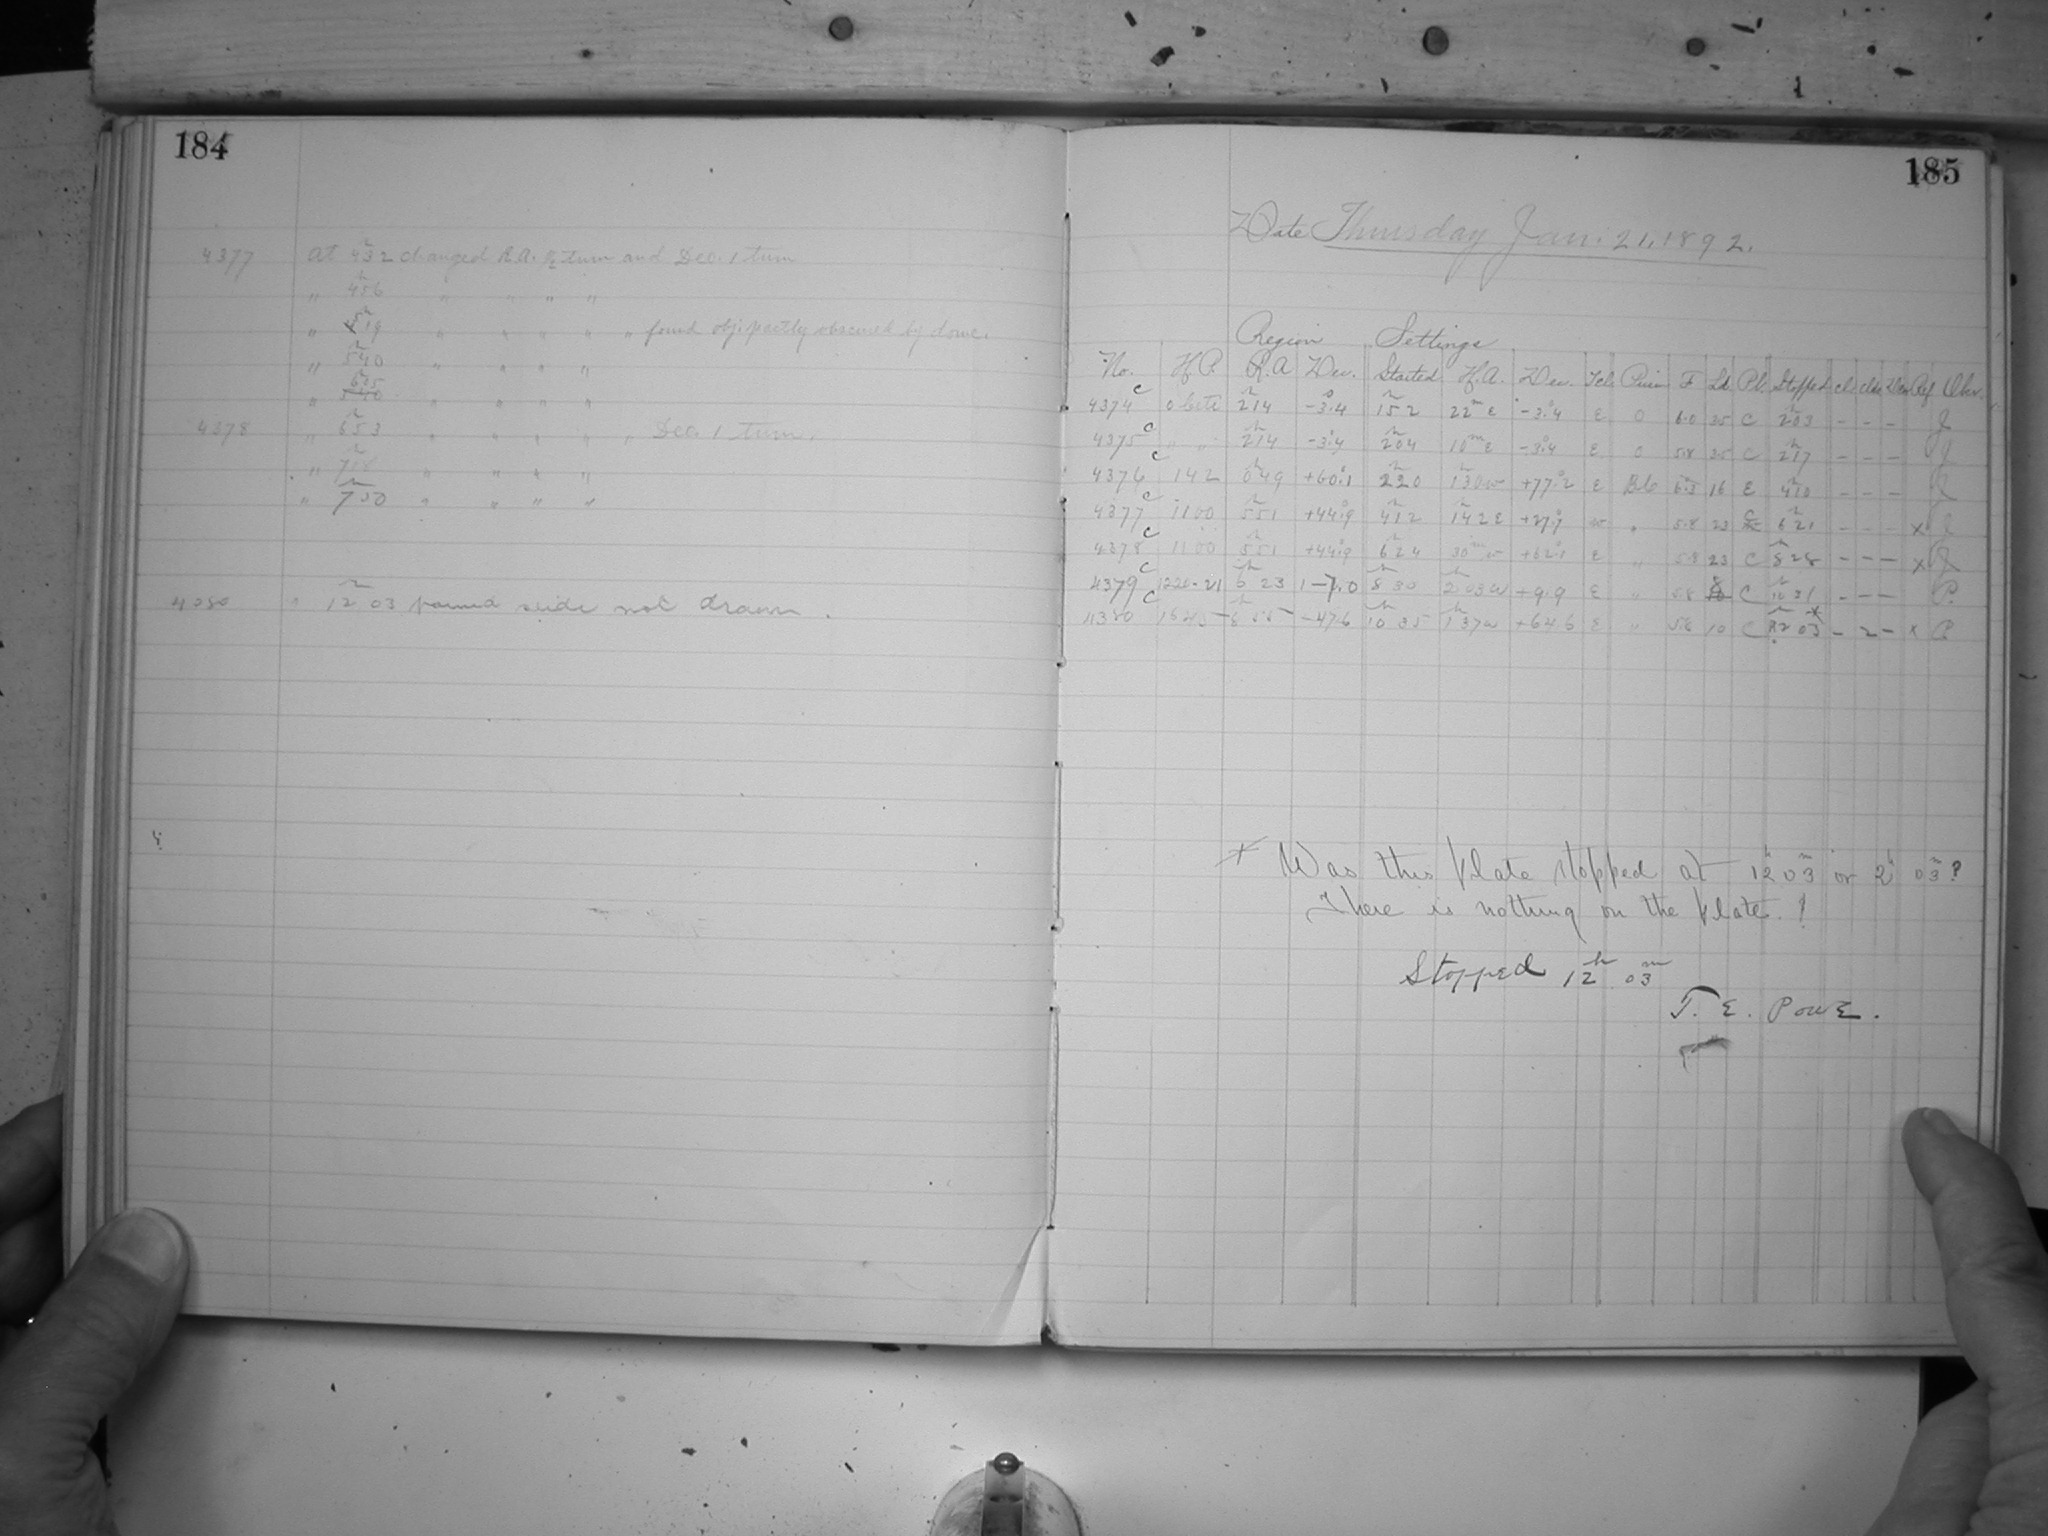 184
4377 At 4h32 changed R.A. ½ turn and Dec. 1 turn
" 4h56 " " " "
" 5h19 " " " " " found obj. partly obscured by dome.
" 5h40 " " " "
" 6h05 " " " "
4378 " 6h53 " " " " " Dec. 1 turn.
" 7h18 " " " "
" 7h50 " " " "
4080 " 12h03 found slide not drawn.
185
Date Thursday Jan. 21, 1892.
Region Settings
No. H.P. R.A Dec. Started H.A. Dec. Tel. F Pl. Stopped Ref Obs.
4374 C o Ceti 2h14 -3°.4 1h52 22m E -3°.4 E O 6.0 35 C 2h03 - - - J
4375 C " " 2h14 -3°.4 2h04 10m E -3°.4 E O 5.8 25 C 2h17 - - - J
4376 C 142 0h49 +60°.1 2h20 1h30w +77°.2 E 16 E 4h10 - - -
4377 C 1100 5h51 +44°.9 4h12 1h42E +27°.9 w " 5.8 23 C 6h21 - - - x
4378 C 1100 5h51 +44°.9 6h24 30m w +62°.1 E " 5.8 23 C 8h28 - - - x J
4379 C 1220-21 6h23 -7.0 8h30 2h03w +9.9 E " 5.8 8 C 10h31 - - - P.
4380 C 1645 -47.6 10h35 1h37w +64.6 E " 5.6 10 C 12h03 * - 2 - x P
x Was this plate stopped at 12h03m or 2h03m?
There is nothing on the plate!
Stopped 12h 03m
T. E. Powe.